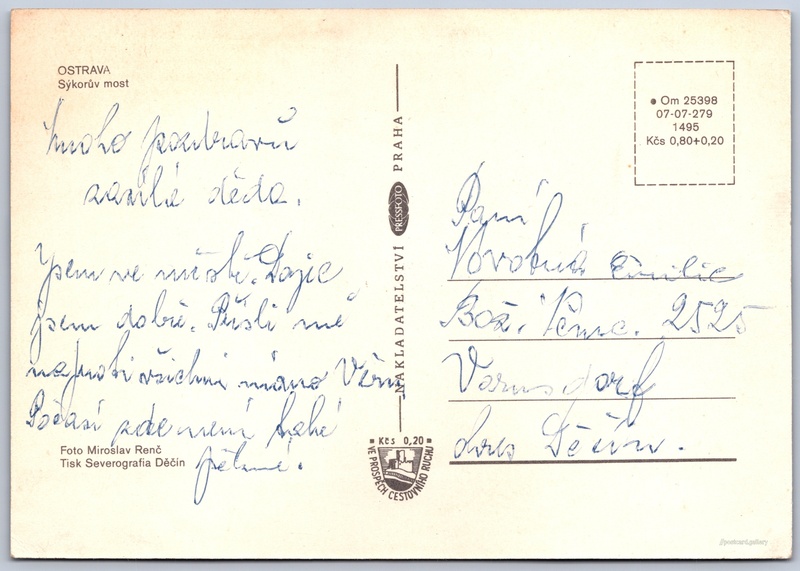 OSTRAVA
Sýkorův most
Mnoho pozdravů
zasílá děda.
Jsem ve městě. Dojel
jsem dobře. Přišli mě
naproti všichni mimo Věru
Počasí zde není také
pěkné.
Foto Miroslav Renč
Tisk Severografia Děčín
NAKLADATELSTVÍ PRESSFOTO PRAHA
Kčs 0,20
VE PROSPĚCH CESTOVNÍHO RUCHU
Om 25398
07-07-279
1495
Kčs 0,80+0,20
Paní
Novotná Emilie
Bož. Němc. 2525
Varnsdorf
okres Děčín.